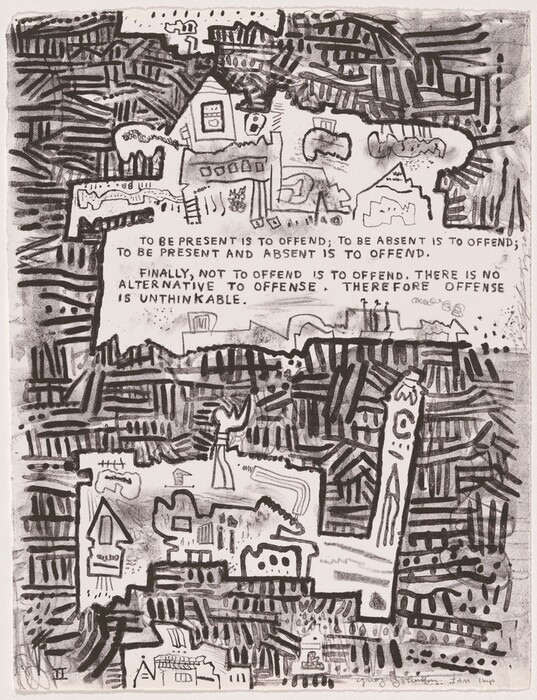 TO BE PRESENT IS TO OFFEND; TO BE ABSENT IS TO OFFEND;
TO BE PRESENT AND ABSENT IS TO OFFEND.
FINALLY, NOT TO OFFEND IS TO OFFEND. THERE IS NO
ALTERNATIVE TO OFFENSE. THEREFORE OFFENSE
IS UNTHINKABLE.
II